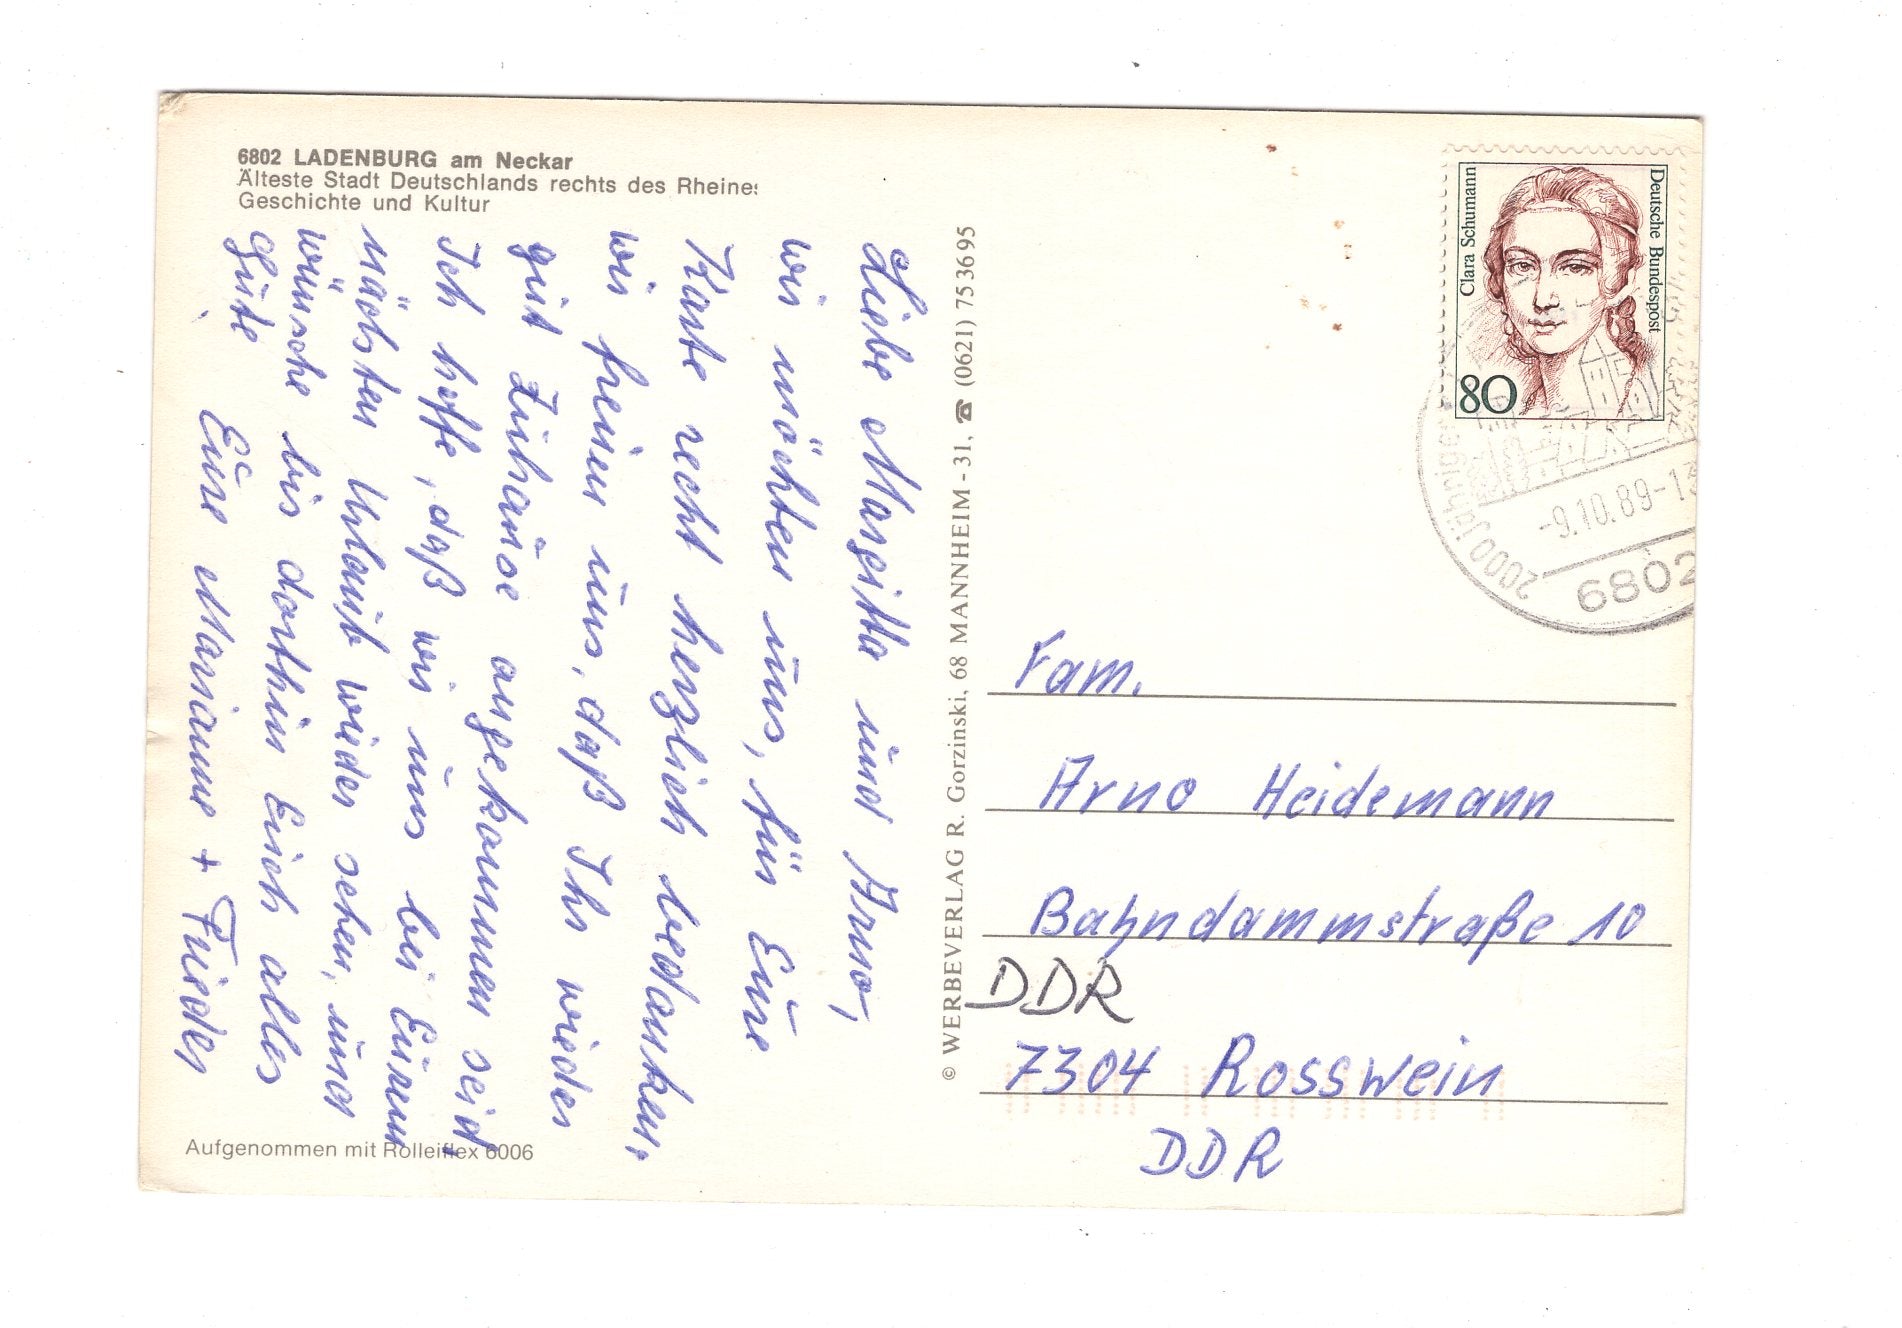 6802 LADENBURG am Neckar
Älteste Stadt Deutschlands rechts des Rheines
Geschichte und Kultur
Liebe Margitta und Arno,
wir möchten uns, für Eure
Karte recht herzlich bedanken,
wir freuen uns, daß Ihr wieder
gut Zuhause angekommen seid
Ich hoffe, daß wir uns bei Eurem
nächsten Urlaub wieder sehen, und
wünsche bis dorthin Euch alles
Gute.
Eure Marianne + Frieder
Aufgenommen mit Rolleiflex 6006
© WERBEVERLAG R. Gorzinski, 68 MANNHEIM - 31, ☎ (0621) 753695
Clara Schumann
Deutsche Bundespost
80
-9.10.89-1
6802
2000 Jähriges
Fam.
Arno Heidemann
Bahndammstraße 10
DDR
7304 Rosswein
DDR